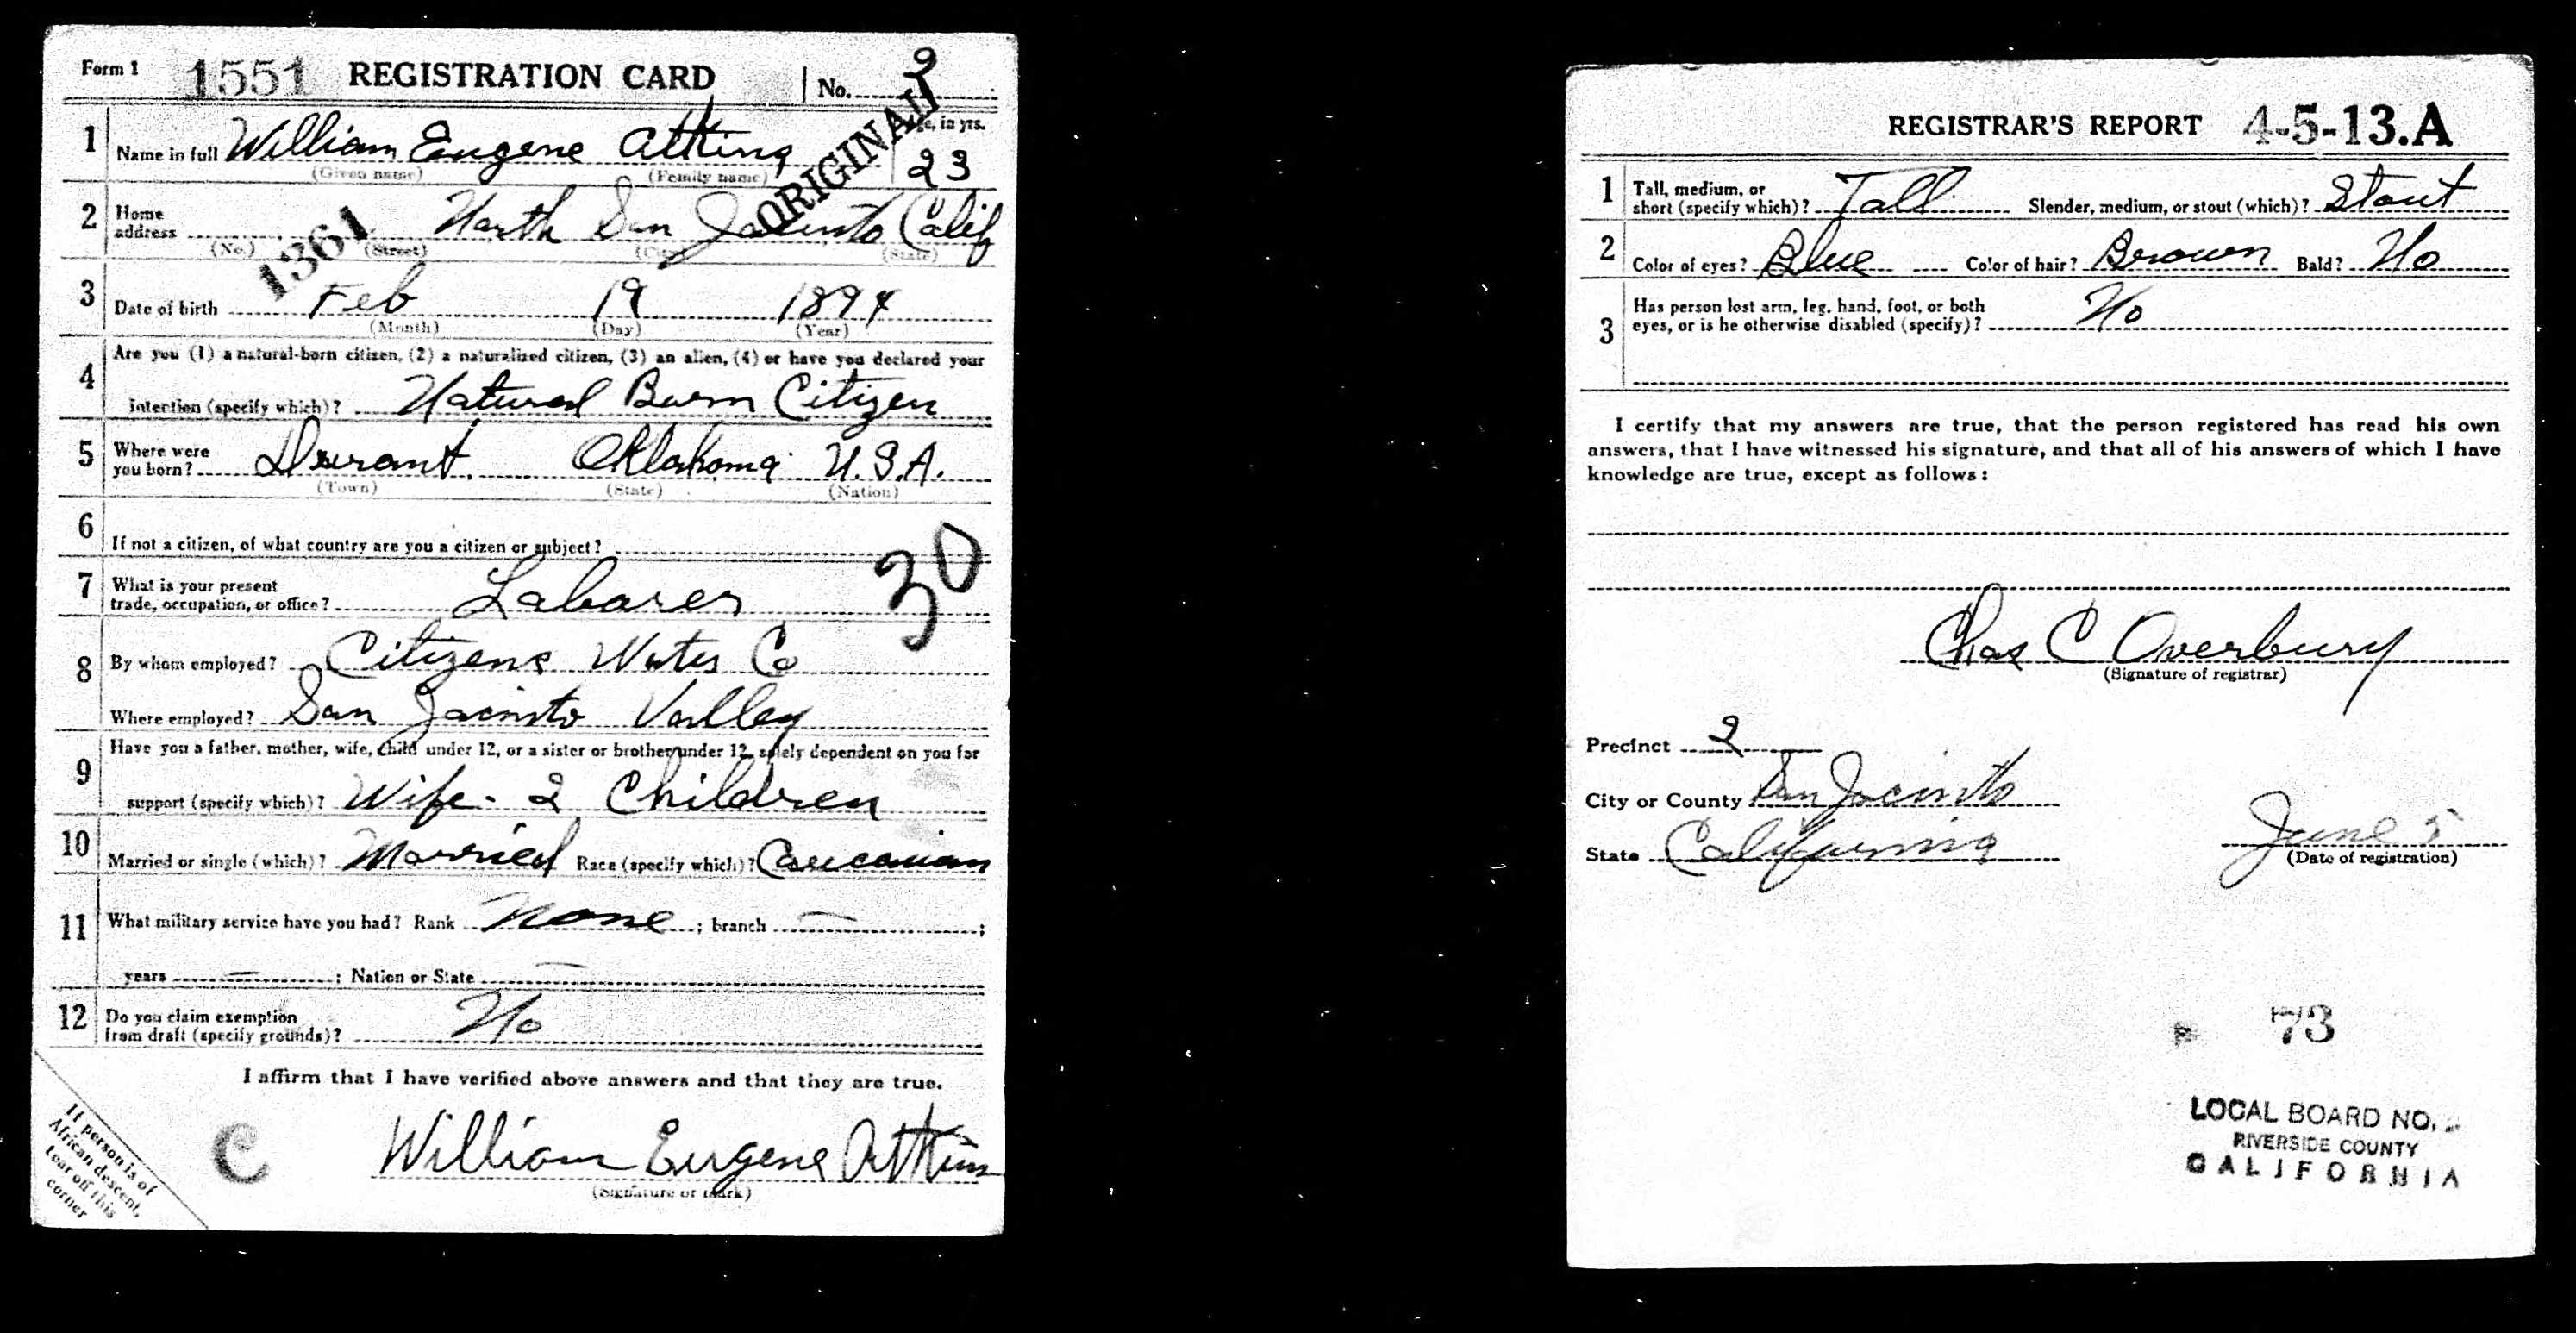 Form 1 1551 REGISTRATION CARD No. 2
ORIGINAL
1 Name in full William Eugene Atkins Age, in yrs. 23
(Given name) (Family name)
2 Home address North San Jacinto Calif
(No.) (Street) (City) (State)
1361
3 Date of birth Feb 19 1894
(Month) (Day) (Year)
4 Are you (1) a natural-born citizen, (2) a naturalized citizen, (3) an alien, (4) or have you declared your
intention (specify which)? Natural Born Citizen
5 Where were you born? Durant, Oklahoma U.S.A.
(Town) (State) (Nation)
6 If not a citizen, of what country are you a citizen or subject?
30
7 What is your present
trade, occupation, or office? Laborer
8 By whom employed? Citizens Water Co
Where employed? San Jacinto Valley
9 Have you a father, mother, wife, child under 12, or a sister or brother under 12, solely dependent on you for
support (specify which)? Wife - 2 Children
10 Married or single (which)? Married Race (specify which)? Caucasian
11 What military service have you had? Rank None ; branch — ;
years — ; Nation or State —
12 Do you claim exemption
from draft (specify grounds)? No
I affirm that I have verified above answers and that they are true.
William Eugene Atkins
(Signature or mark)
C
If person is of
African descent,
tear off this
corner
REGISTRAR'S REPORT 4-5-13.A
1 Tall, medium, or
short (specify which)? Tall Slender, medium, or stout (which)? Stout
2 Color of eyes? Blue Color of hair? Brown Bald? No
3 Has person lost arm, leg, hand, foot, or both
eyes, or is he otherwise disabled (specify)? No
I certify that my answers are true, that the person registered has read his own
answers, that I have witnessed his signature, and that all of his answers of which I have
knowledge are true, except as follows:
Chas C Overbury
(Signature of registrar)
Precinct 2
City or County San Jacinto
State California
June 5
(Date of registration)
73
LOCAL BOARD NO. 2
RIVERSIDE COUNTY
CALIFORNIA